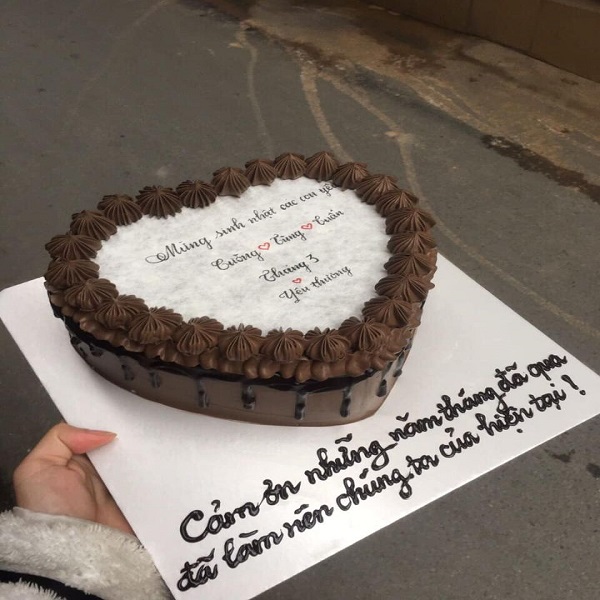 Mừng sinh nhật các con yêu
Cường Tùng Tuấn
Tháng 3
Yêu thương
Cảm ơn những năm tháng đã qua
đã làm nên chúng ta của hiện tại!